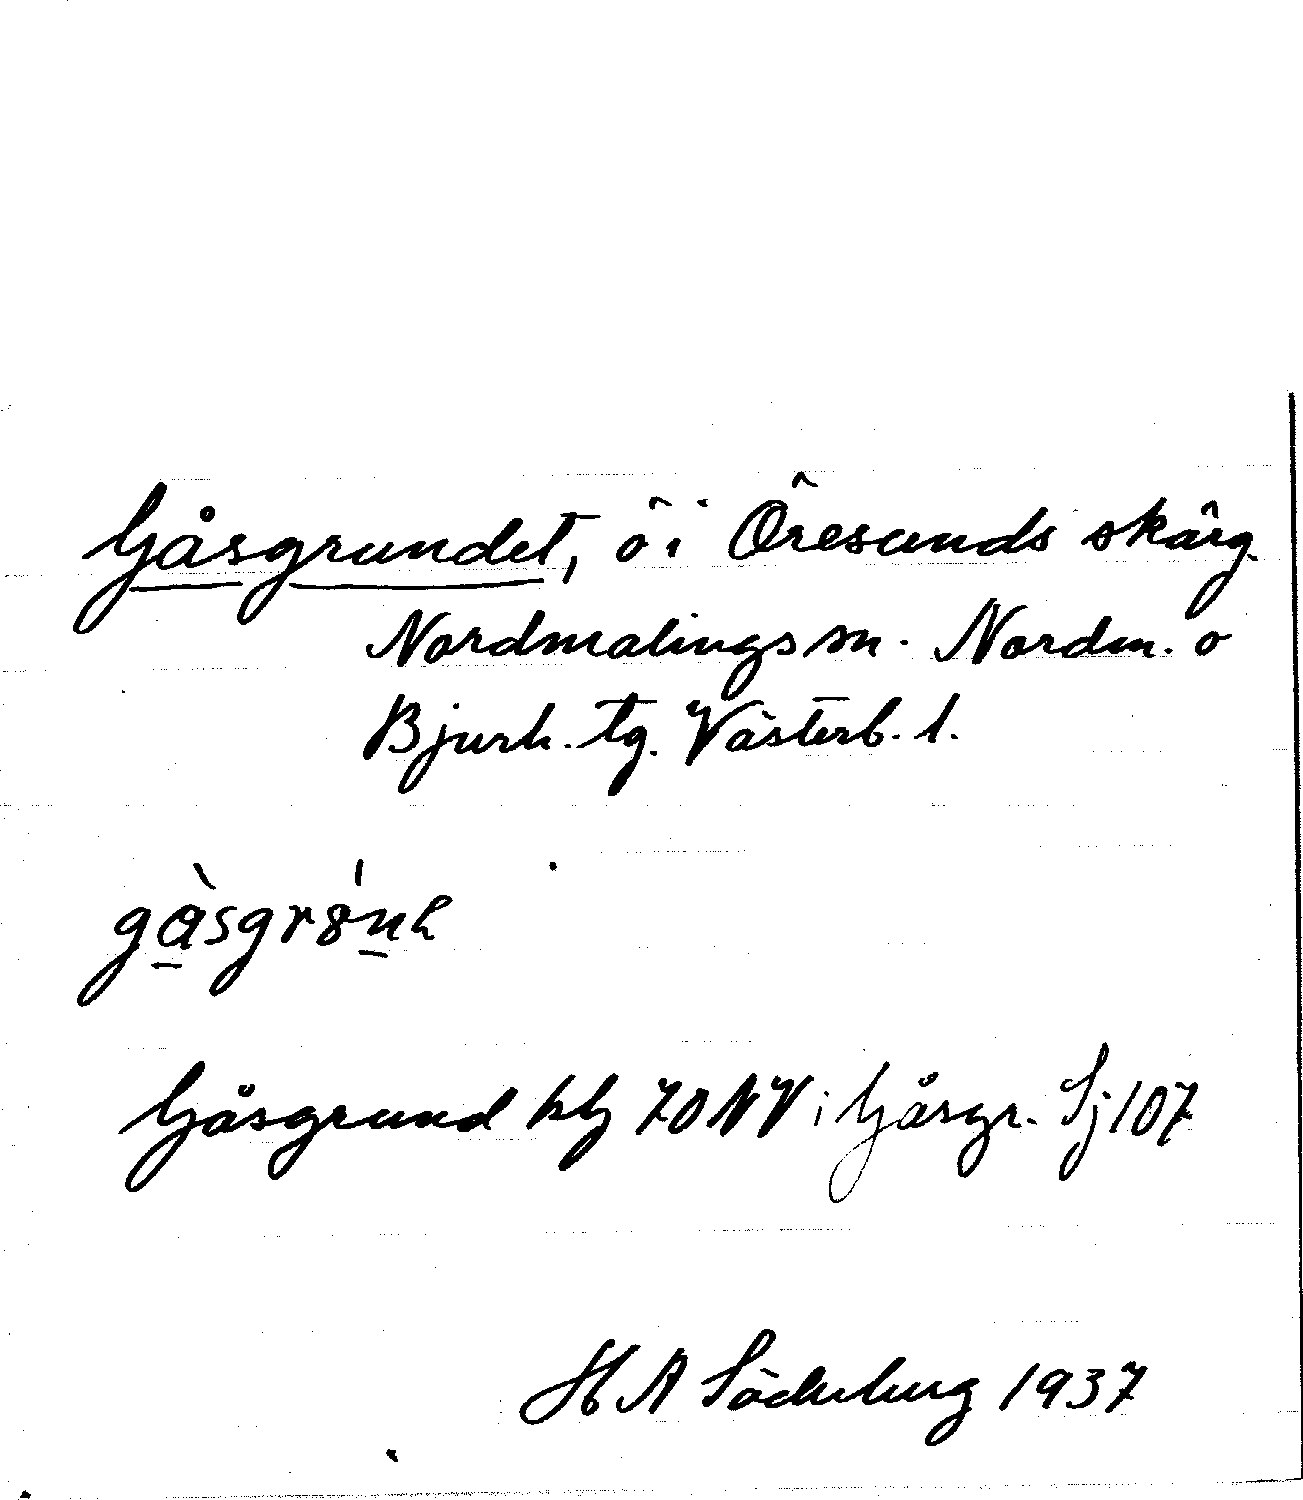 Gåsgrundet, ö i Öresunds skärg.
Nordmalings sn. Nordm. o
Bjurh. tg. Västerb. l.
Gåsgrund kbl 70 NV i Gåsgr. Sj 107
H A Söderberg 1937